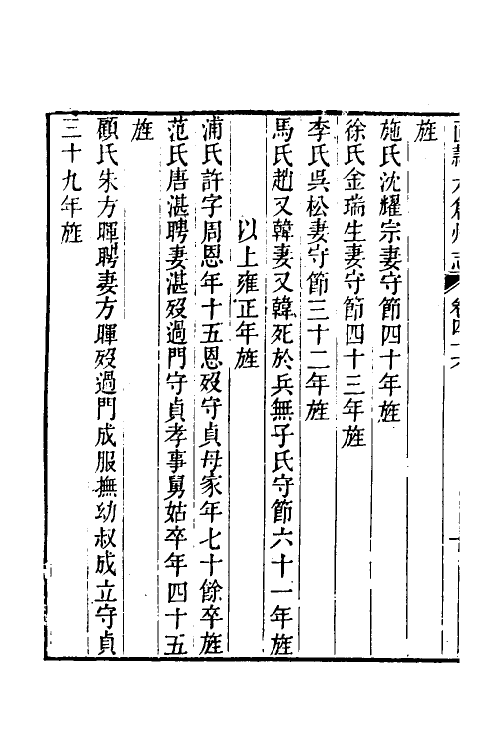 旌
施氏沈耀宗妻守節四十年旌
徐氏金瑞生妻守節四十三年旌
李氏吳松妻守節三十二年旌
馬氏趙又韓妻又韓死於兵無子氏守節六十一年旌
以上雍正年旌
浦氏許字周恩年十五恩歿守貞母家年七十餘卒旌
范氏唐湛聘妻湛歿過門守貞孝事舅姑卒年四十五
旌
顧氏朱方暉聘妻方暉歿過門成服撫幼叔成立守貞
三十九年旌